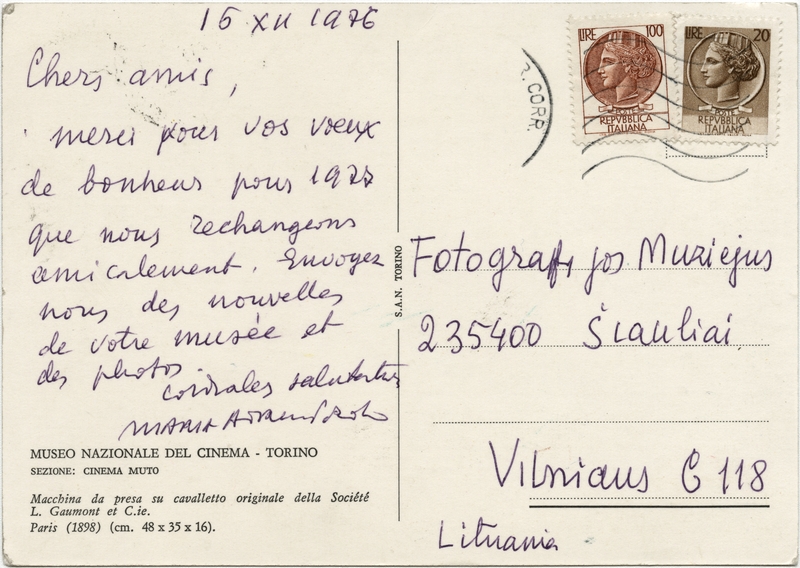 15 XII 1976
Chers amis,
merci pour vos voeux
de bonheur pour 1977
que nous rechangeons
amicalement. Envoyez
nous des nouvelles
de votre musée et
des photos
cordiales salutations
MARIA
MUSEO NAZIONALE DEL CINEMA - TORINO
SEZIONE: CINEMA MUTO
Macchina da presa su cavalletto originale della Société
L. Gaumont et C.ie.
Paris (1898) (cm. 48 x 35 x 16).
S.A.N. TORINO
R. CORR.
LIRE 100
POSTE
REPVBBLICA
ITALIANA
LIRE 20
POSTE
REPVBBLICA
ITALIANA
Fotografijos Muziejus
235400 Šiauliai
Vilniaus G 118
Lituania